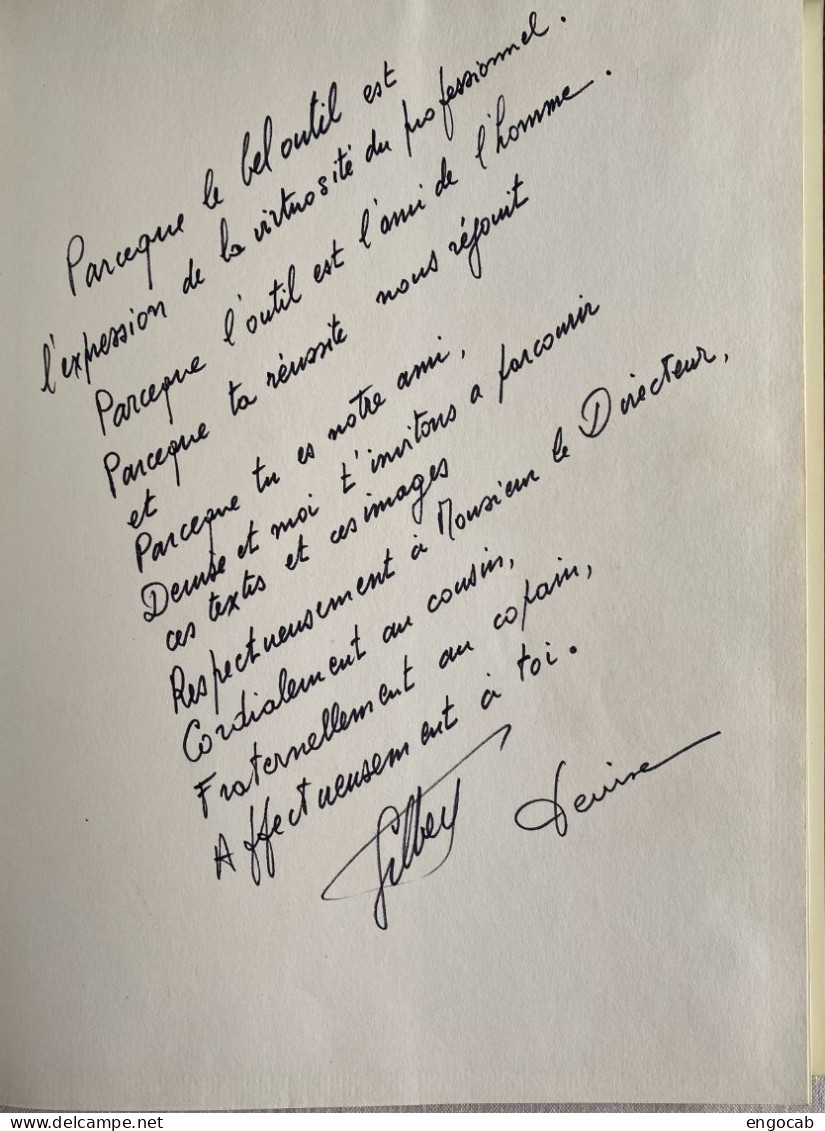 Parceque le bel outil est
l'expression de la virtuosité du professionnel.
Parceque l'outil est l'ami de l'homme.
Parceque ta réussite nous réjouit
et
Parceque tu es notre ami,
Denise et moi t'invitons a parcourir
ces textes et ces images
Respectueusement à Monsieur le Directeur,
Cordialement au cousin,
Fraternellement au copain,
Affectueusement à toi.
Gilbert Denise
delcampe.net
engocab